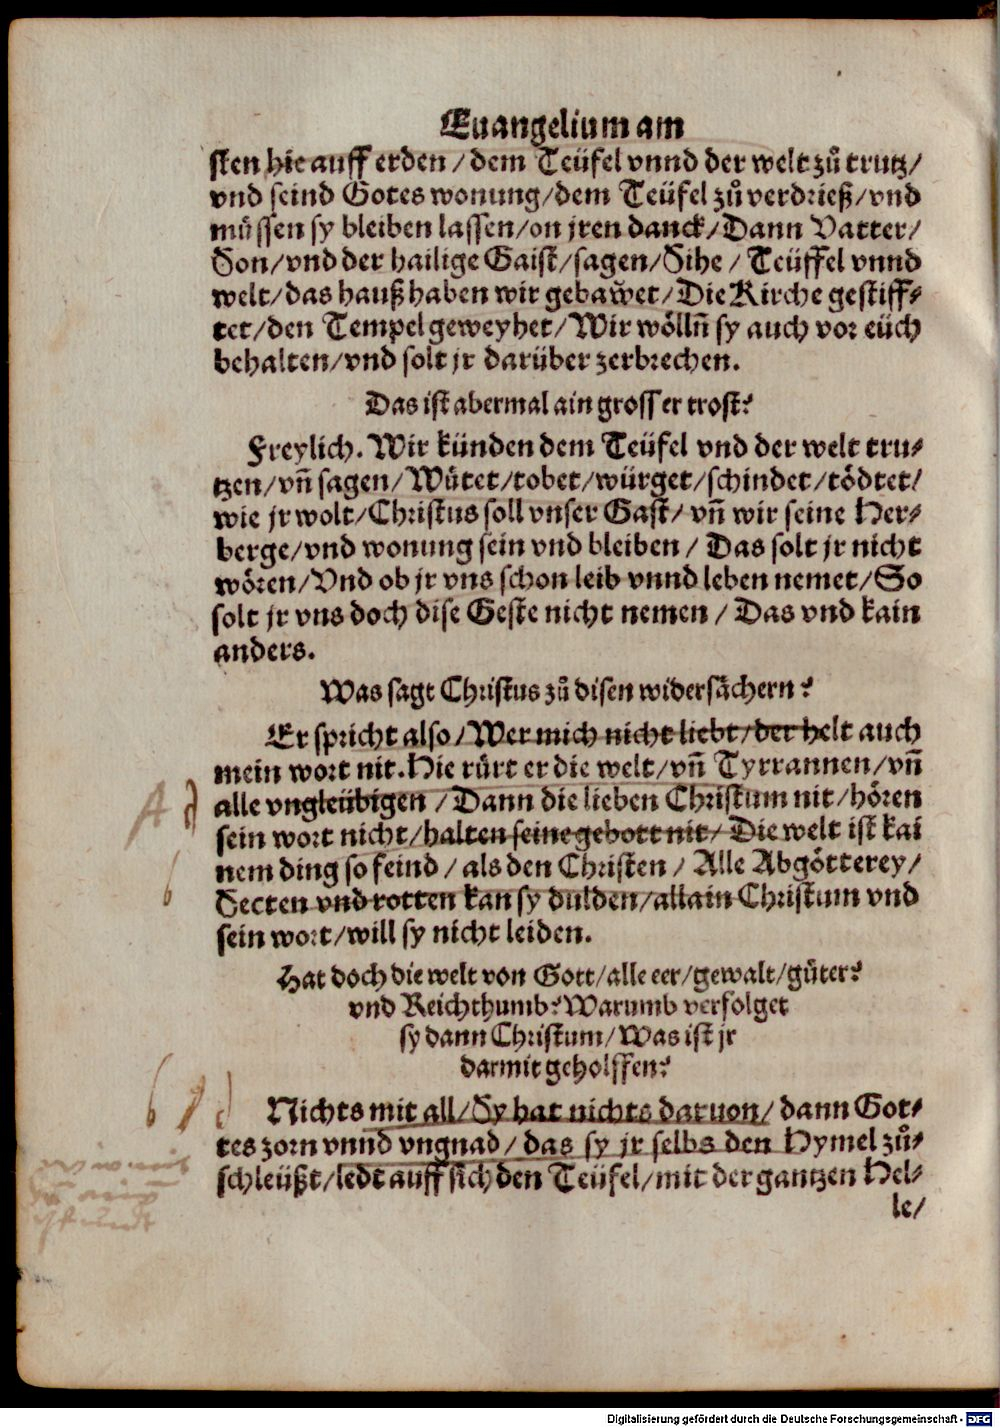 Euangelium am
sten hie auff erden / dem Teüfel vnnd der welt zů trutz /
vnd seind Gotes wonung / dem Teüfel zů verdrieß / vnd
müssen sy bleiben lassen / on jren danck / Dann Vatter /
Son / vnd der hailige Gaist / sagen / Sihe / Teüffel vnnd
welt / das hauß haben wir gebawet / Die Kirche gestiff⸗
tet / den Tempel geweyhet / Wir wölln̄ sy auch vor eüch
behalten / vnd solt jr darüber zerbrechen.
Das ist abermal ain grosser trost?
Freylich. Wir künden dem Teüfel vnd der welt tru⸗
tzen / vn̄ sagen / Wütet / tobet / würget / schindet / tödtet /
wie jr wolt / Christus soll vnser Gast / vn̄ wir seine Her⸗
berge / vnd wonung sein vnd bleiben / Das solt jr nicht
wören / Vnd ob jr vns schon leib vnnd leben nemet / So
solt jr vns doch dise Geste nicht nemen / Das vnd kain
anders.
Was sagt Christus zů disen widersächern?
Er spricht also / Wer mich nicht liebt / der helt auch
mein wort nit. Hie rürt er die welt / vn̄ Tyrrannen / vn̄
alle vngleübigen / Dann die lieben Christum nit / hören
sein wort nicht / halten seine gebott nit / Die welt ist kai
nem ding so feind / als den Christen / Alle Abgötterey /
Secten vnd rotten kan sy dulden / allain Christum vnd
sein wort / will sy nicht leiden.
Hat doch die welt von Gott / alle eer / gewalt / güter?
vnd Reichthumb? Warumb verfolget
sy dann Christum / Was ist jr
darmit geholffen?
Nichts mit all / Sy hat nichts daruon / dann Got⸗
tes zorn vnnd vngnad / das sy jr selbs den Hymel zů⸗
schleüßt / ledt auff sich den Teüfel / mit der gantzen Hel⸗
le /
Digitalisierung gefördert durch die Deutsche Forschungsgemeinschaft - DFG